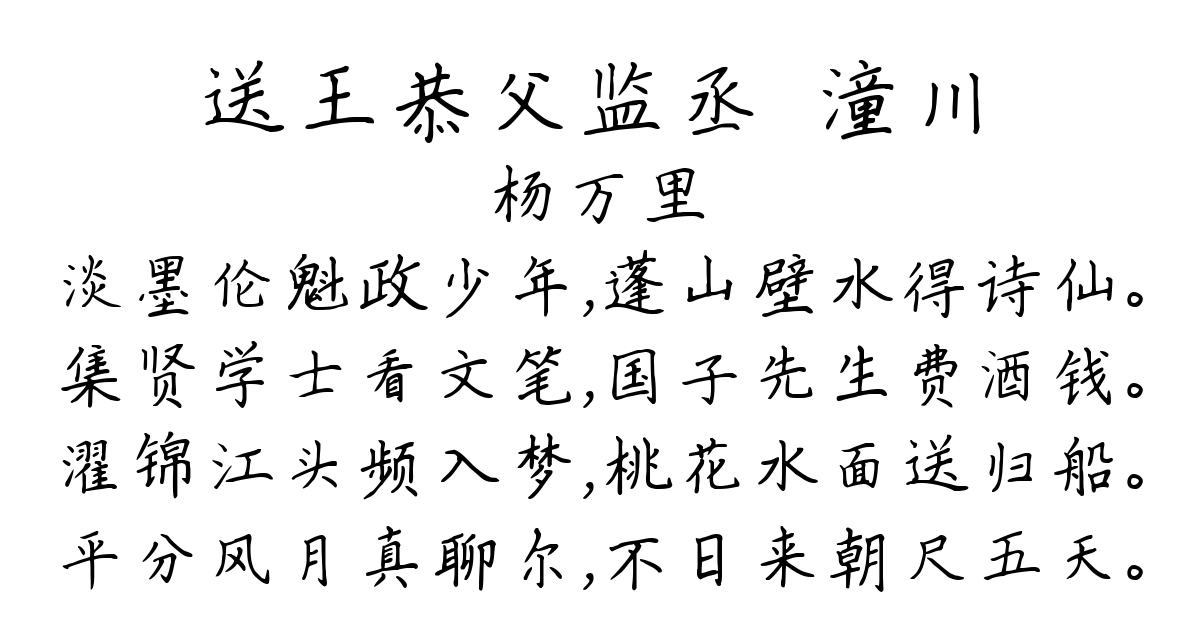 送王恭父监丞 潼川
杨万里
淡墨伦魁政少年,蓬山壁水得诗仙。
集贤学士看文笔,国子先生费酒钱。
濯锦江头频入梦,桃花水面送归船。
平分风月真聊尔,不日来朝尺五天。